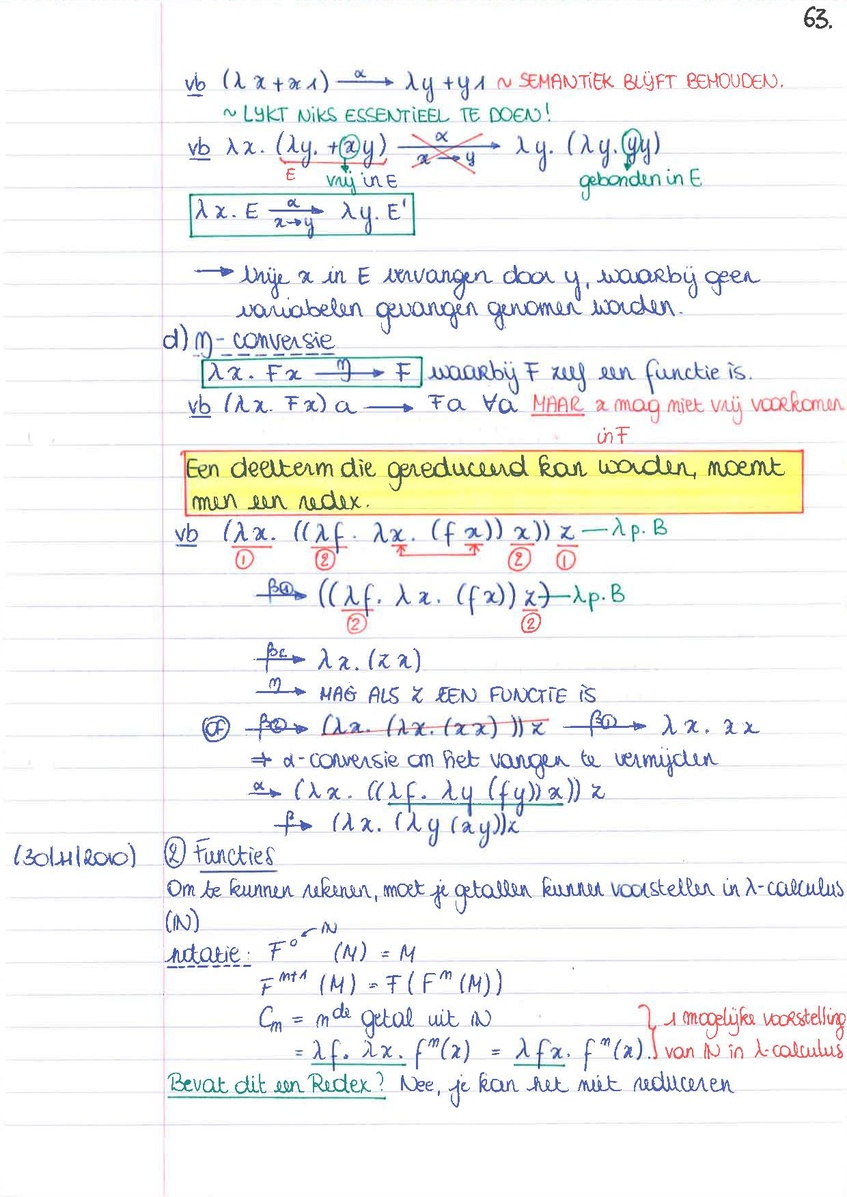 63.
vb (λx+x1) —α→ λy+y1 ~ SEMANTIEK BLIJFT BEHOUDEN.
~ LIJKT NIKS ESSENTIEEL TE DOEN!
vb λx. (λy. +xy) —α→ λy. (λy. yy)
x→y
E vrij in E gebonden in E
λx. E —α→ λy. E'
x→y
→ Vrije x in E vervangen door y, waarbij geen
variabelen gevangen genomen worden.
d) η-conversie
λx. Fx —η→ F waarbij F zelf een functie is.
vb (λx. Fx) a → Fa ∀a MAAR x mag niet vrij voorkomen
in F
Een deelterm die gereduceerd kan worden, noemt
men een redex.
vb (λx. ((λf. λx. (fx)) x)) z — λp. B
① ② ② ①
—β①→ ((λf. λx. (fx)) z) — λp. B
② ②
—β②→ λx. (zx)
—η→ MAG ALS Z EEN FUNCTIE IS
OF —β②→ (λx. (λx. (xx))) z —β①→ λx. xx
⇒ α-conversie om het vangen te vermijden
—α→ (λx. ((λf. λy (fy)) x)) z
—β→ (λx. (λy (xy))z
(30/11/2010) ② Functies
Om te kunnen rekenen, moet je getallen kunnen voorstellen in λ-calculus
(ℕ)
notatie: F⁰ (M) = M
ℕ
Fⁿ⁺¹ (M) = F(Fⁿ(M))
Cₙ = nde getal uit ℕ } 1 mogelijke voorstelling
= λf. λx. fⁿ(x) = λfx. fⁿ(x). van ℕ in λ-calculus
Bevat dit een Redex? Nee, je kan het niet reduceren